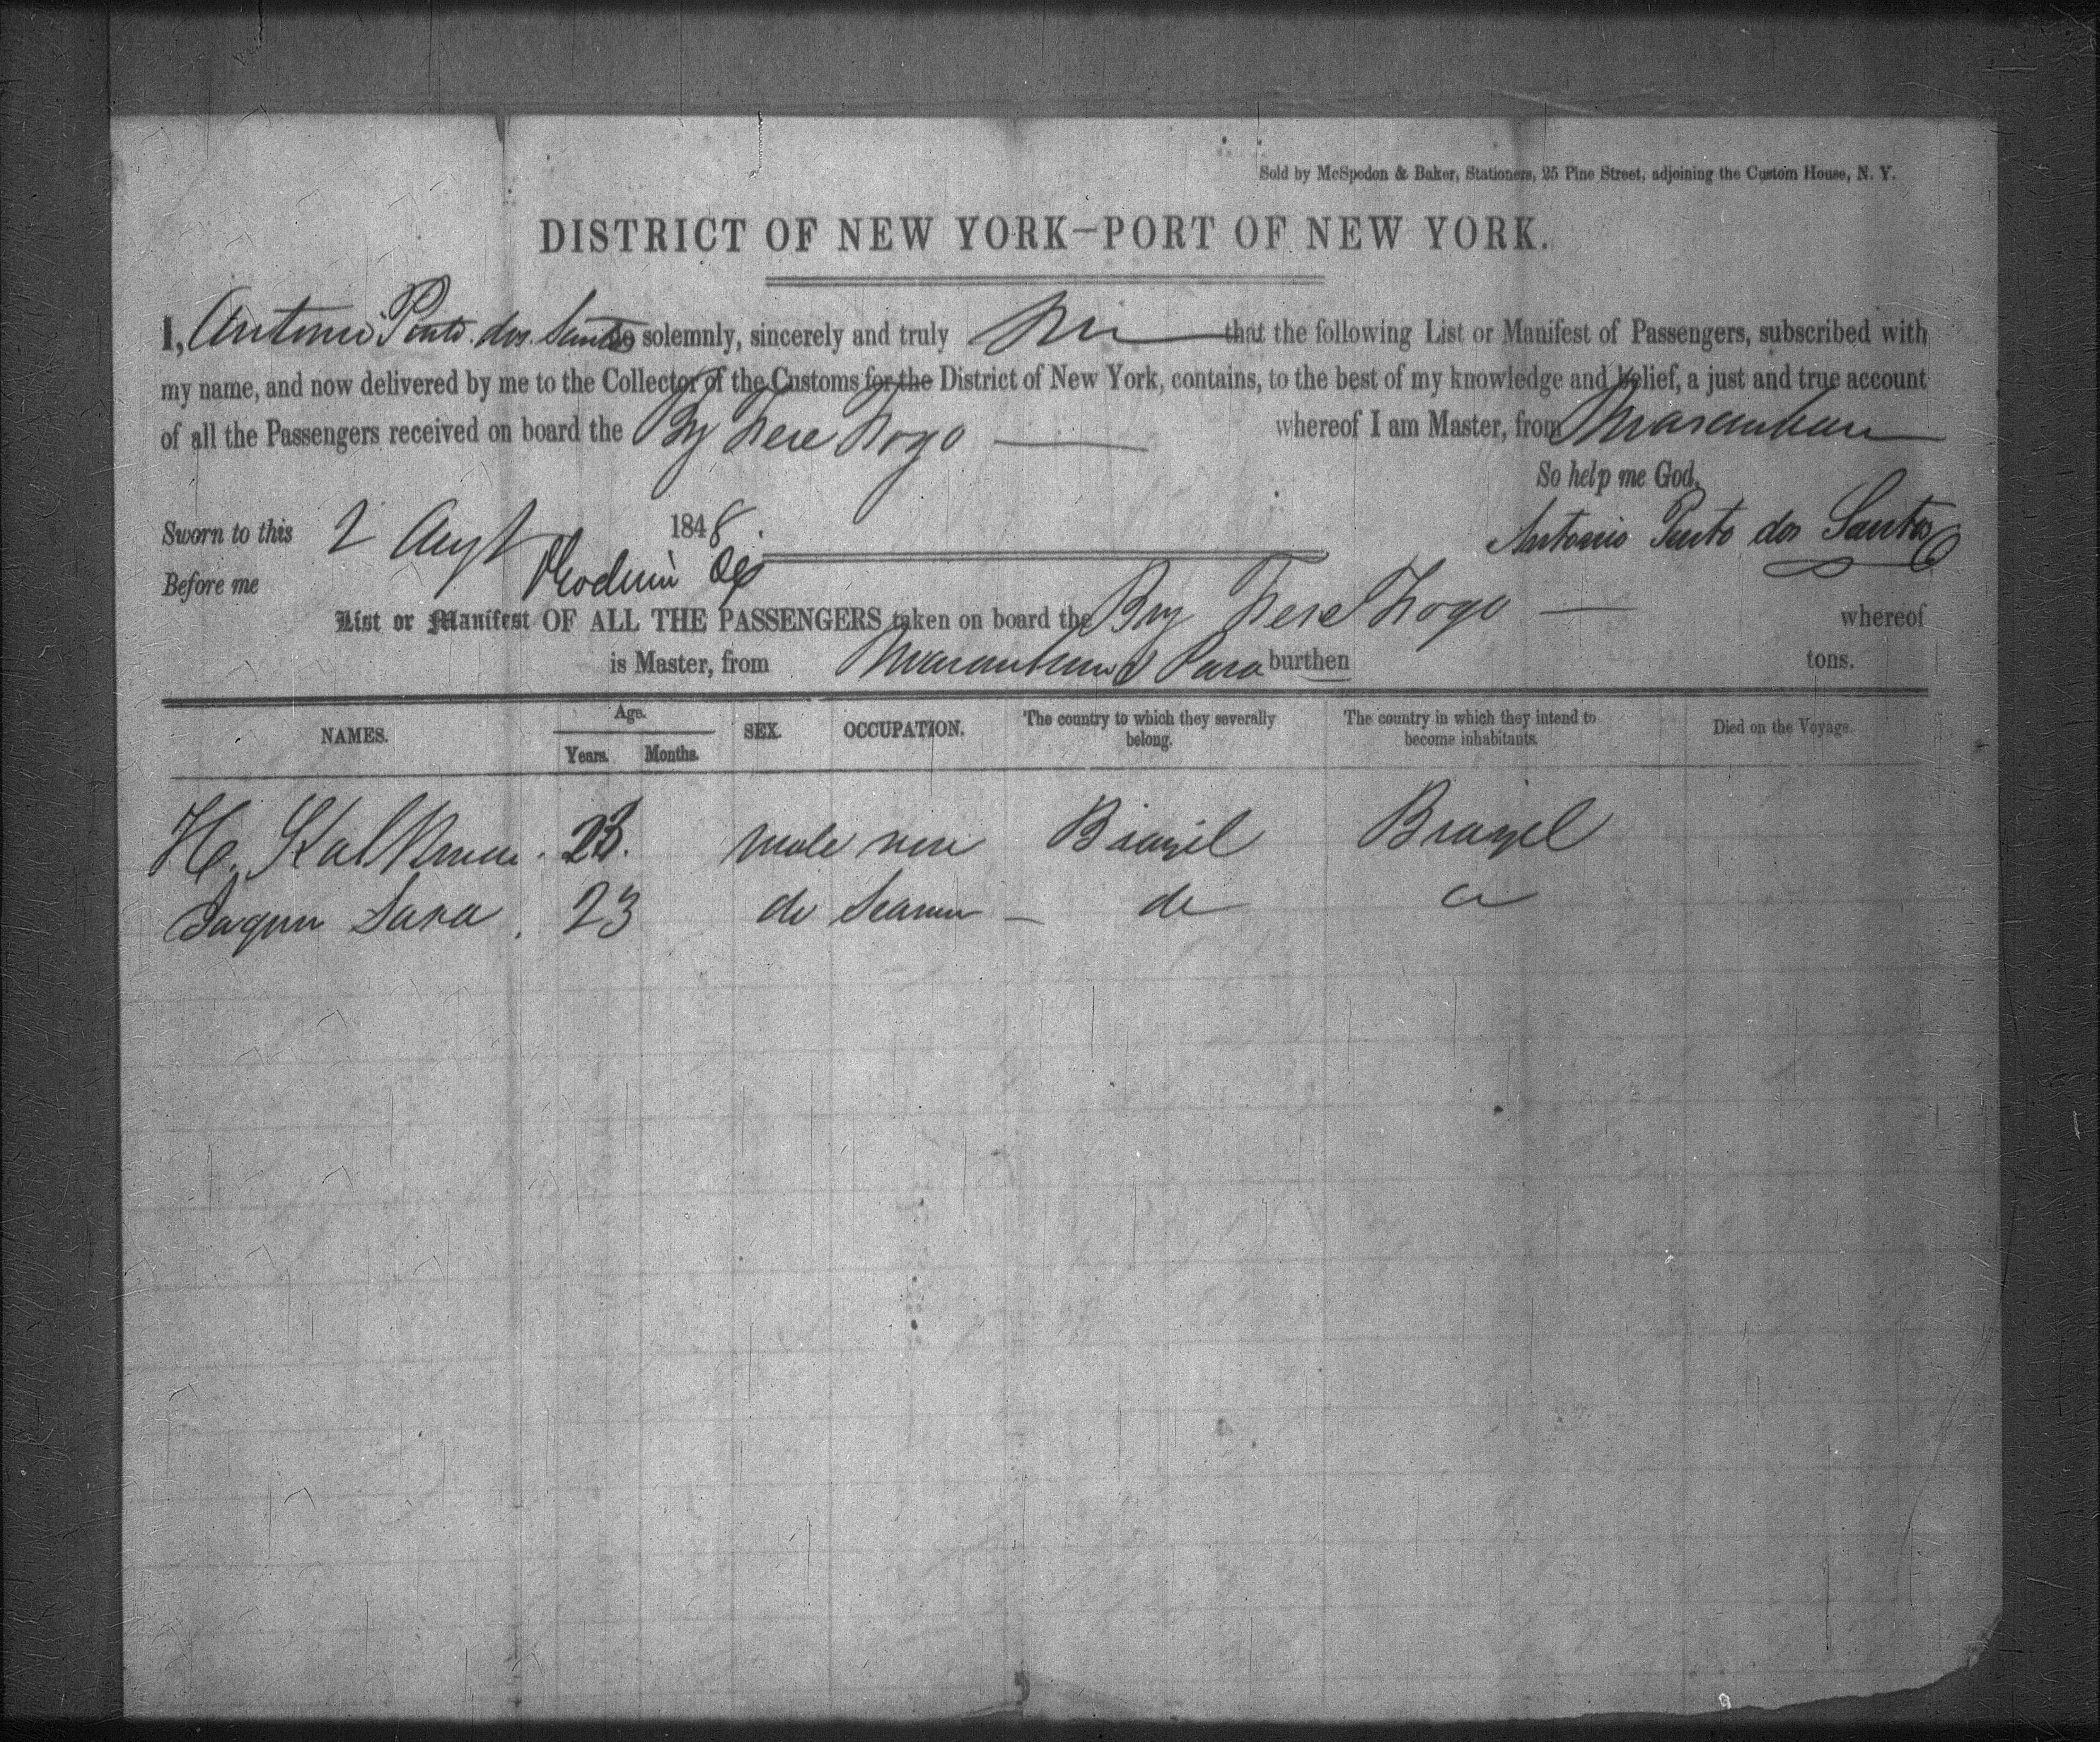 Sold by McSpedon & Baker, Stationers, 25 Pine Street, adjoining the Custom House, N. Y.
DISTRICT OF NEW YORK–PORT OF NEW YORK.
I, Antonio Pinto dos Santos do solemnly, sincerely and truly that the following List or Manifest of Passengers, subscribed with
my name, and now delivered by me to the Collector of the Customs for the District of New York, contains, to the best of my knowledge and belief, a just and true account
of all the Passengers received on board the Brg whereof I am Master, from Maranham
So help me God.
Sworn to this 2 Augt 1848. Antonio Pinto dos Santos
Before me
List or Manifest OF ALL THE PASSENGERS taken on board the Brg whereof
is Master, from Maranham & Para burthen tons.
NAMES. Age. SEX. OCCUPATION. The country to which they severally belong. The country in which they intend to become inhabitants. Died on the Voyage.
Years. Months.
H. 23. male Brazil Brazil
23 do do